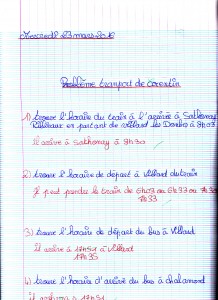 mercredi 23 mars 2016
Problème transport de corentin
1) trouve l'horaire du train à l'arrivée à Sathonay
Rillieux en partant de villard les Dombes à 9h03
il arrive à Sathonay à 9h30
2) trouve l'horaire de départ à Villard du train
Je peut perdre le train de 6h03 ou 6h33 ou 7h30
7h33
3) trouve l'horaire de départ du bus à Villard
il arrive à 17h51 à Villard
17h35
4) trouve l'horaire d'arrivé du bus à chalamont
il arrivera à 17h51